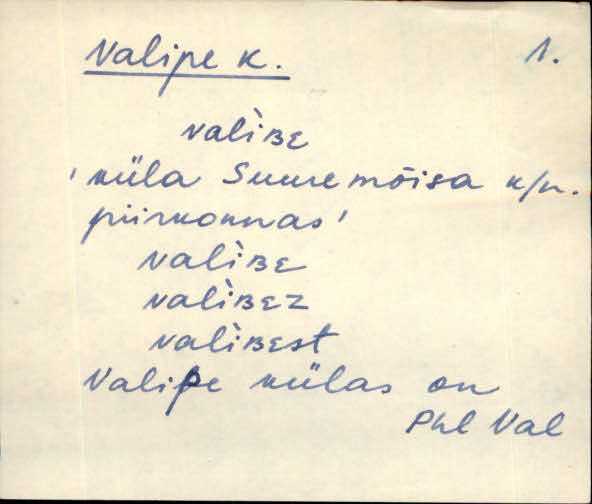 Valipe k. 1.
valìʙᴇ
'küla Suuremõisa k/n.
piirkonnas'
valìʙᴇ
valìʙᴇz
valìʙᴇst
Valipe külas on
Phl Val